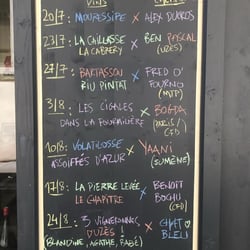 VINS
20/7 : MOURESSIPE x ALEX DUROS
23/7 : LA CAILLASSE x BEN PASCAL
LA CABRERY (UZÈS)
27/7 : BARTASSOU x FRED O'
RIU PINTAT FOURNO
(MTP)
3/8 : LES CIGALES x BOGDA
DANS LA FOURMILIÈRE (PARIS/
CFD)
10/8 : VOLATILOSSE x YAANI
ASSOIFFÉS D'AZUR (SUMÈNE)
17/8 : LA PIERRE LEVÉE x BENOIT
LE CHAPITRE BOCHU
(CFD)
24/8 : 3 VIGNERONNES x CHAT
D'UZÈS ! BLEU
BLANDINE, AGATHE, FABÉ)